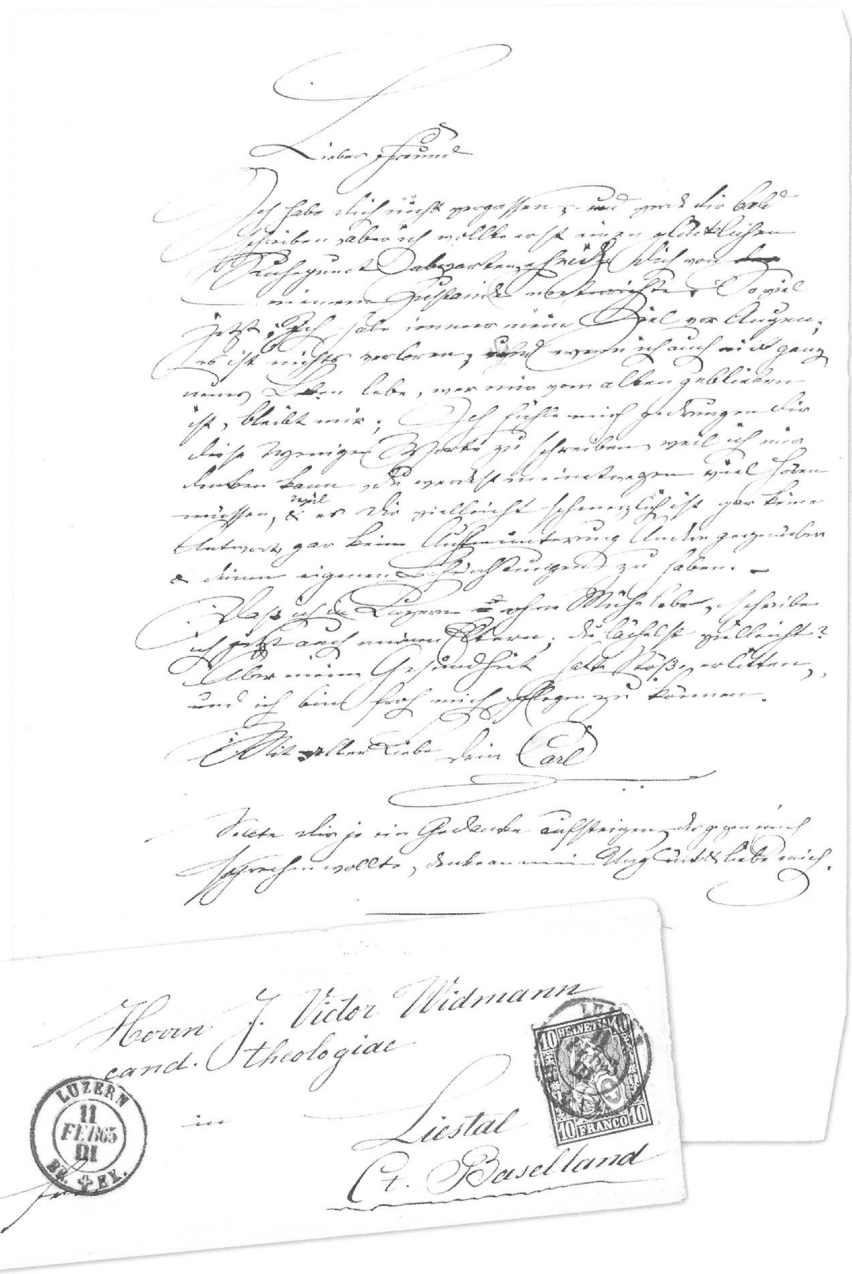 Lieber Freund
Ich habe dich nicht vergessen, und werde dir bald
schreiben, aber ich wollte erst einen glücklichen
Ruhepunct abwarten, ehe ich dich von
meinem Zustande unterrichte. Soviel
jetzt: Ich habe immer mein Ziel vor Augen;
es ist nichts verloren, und wenn ich auch ein ganz
neues Leben lebe, wer mir vom alten geblieben
ist, bleibt mir; Ich fühle mich gedrungen dir
diese wenigen Worte zu schreiben, weil ich mir
denken kann, du werdest meinetwegen viel hören
müssen, & weil es dir vielleicht schmerzlich ist gar keine
Antwort, gar keine Aufmunterung Andern gegenüber
& deinen eigenen Befürchtungen zu haben. –
Dass ich in Luzern ohne Mühe lebe, schreibe
ich jetzt auch meinen Eltern; du lächelst vielleicht?
Aber meine Gesundheit hatte Stöße erlitten,
und ich bin froh mich pflegen zu können.
Mit aller Liebe dein Carl
Sollte dir je ein Gedanke aufsteigen, der gegen mich
sprechen wollte, denke an mein Unglück & liebe mich.
Herrn J. Victor Widmann
cand. theologiae
in
Liestal
Ct. Baselland
LUZERN
11
FEB 65
III
BR. EX.
10 HELVETIA 10
10 FRANCO 10